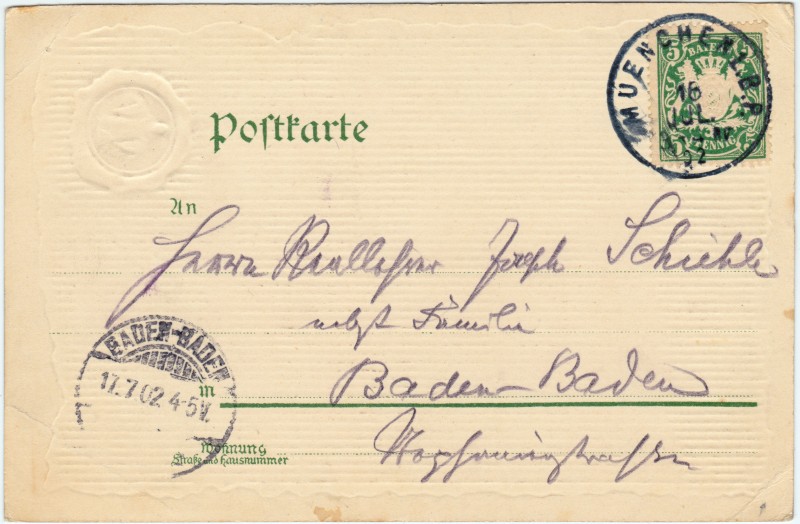 Postkarte
MUENCHEN I.B.P.
16
JUL.
02
5 BAYERN 5
5 PFENNIG 5
An
Herrn Reallehrer Joseph Schiehle
nebst Familie
BADEN-BADEN
17.7.02 4-5V.
in Baden-Baden
Wohnung
Straße und Hausnummer